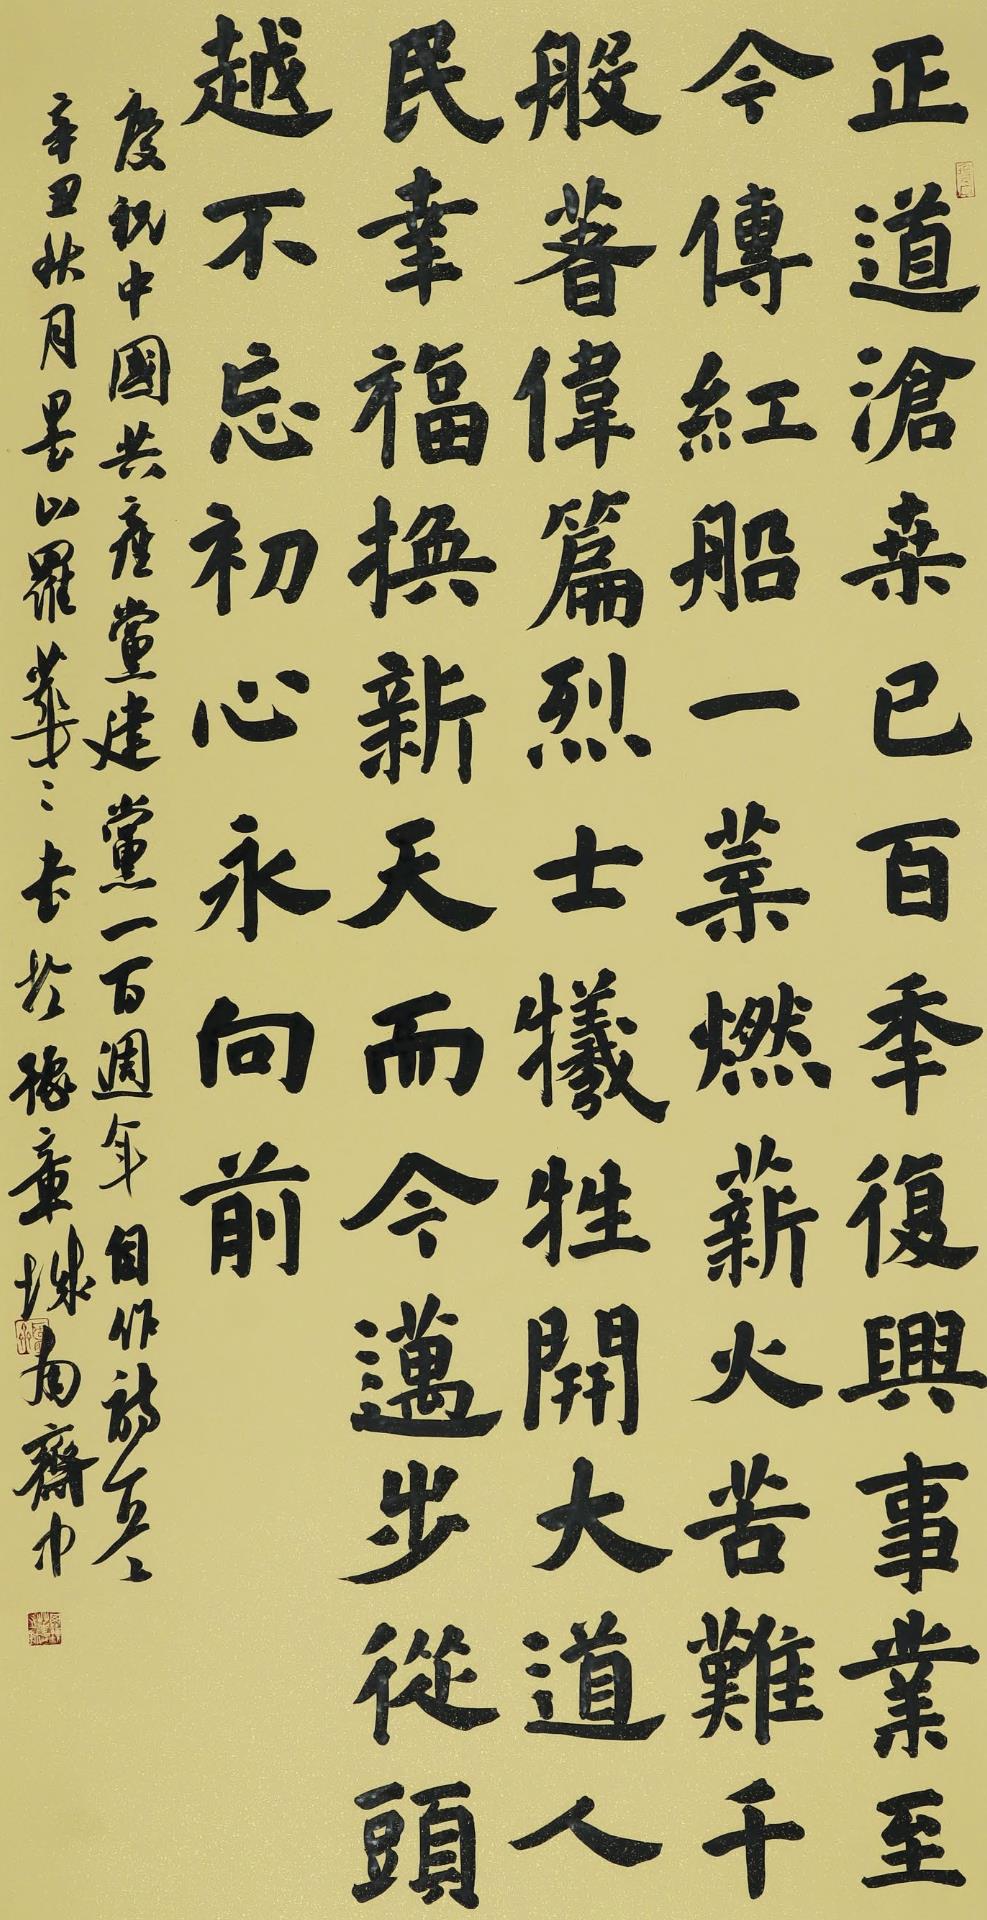 正道滄桑已百年復興事業至
今傳紅船一葉燃薪火苦難千
般著偉篇烈士犧牲開大道人
民幸福換新天而今邁步從頭
越不忘初心永向前
慶祝中國共產黨建黨一百週年自作詩一首
辛丑秋月墨山羅華書於豫章城南齋中